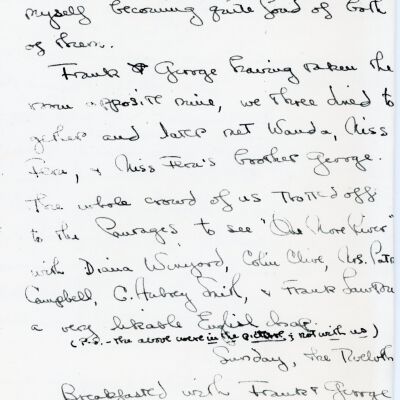 myself becoming quite fond of both
of them.
Frank & George having taken the
room opposite mine, we three dined to
gether and later met Wanda, Miss
Fera, & Miss Fera's brother George.
The whole crowd of us trotted off
to the to see "One More River"
with Diana Winyard, Colin Clive, Mrs. Patr
Campbell, C. Aubrey Smith, & Frank Lawton
a very likable English chap.
(P.S. - the above were in the picture & not with us)
Sunday, the Twelfth
Breakfasted with Frank & George